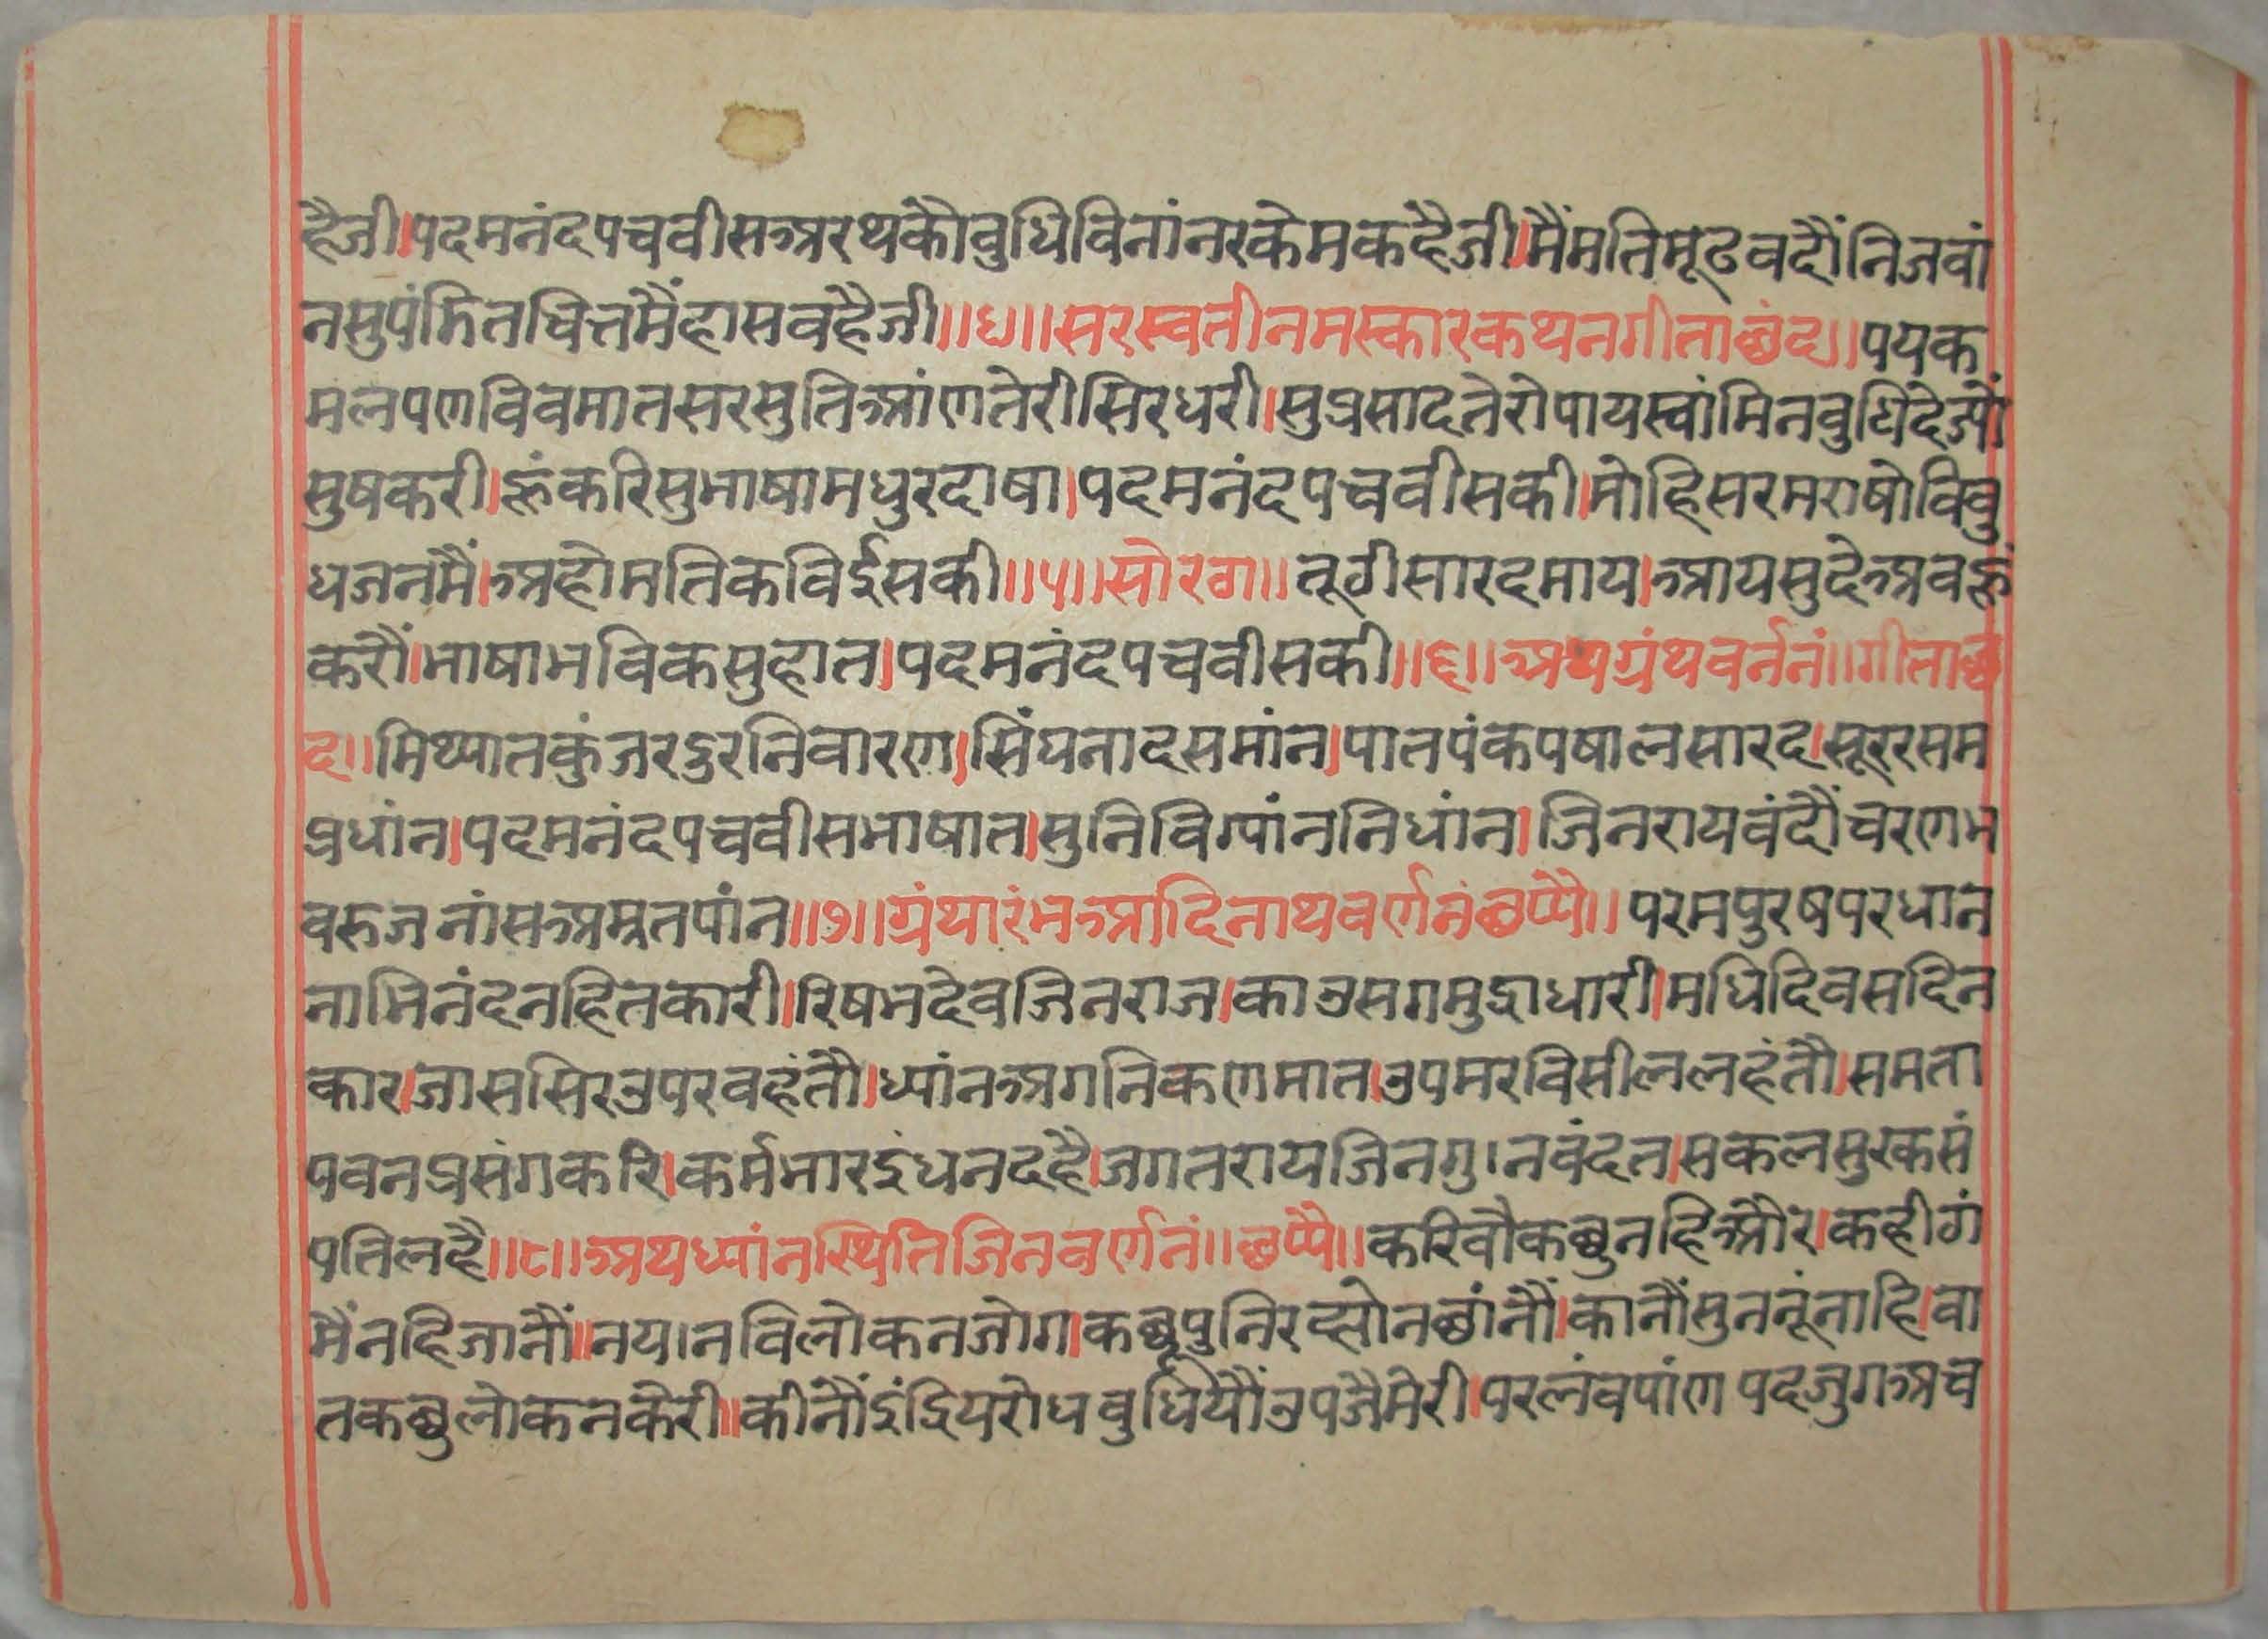 हैजी।पदमनंदपचवीसअरथकौवुधिविनांनरकेमकहैजी।मैंमतिमूढवदौंनिजवां
नसुपंडितचित्तमैंहासवहैजी॥४॥सरस्वतीनमस्कारकथनगीताछंद॥पयक
मलपणविवमातसरसुतिआंणतेरीसिरधरी।सुप्रसादतेरोपायस्वांमिनवुधिदेज्यों
सुषकरी।हूंकरिसुभाषामधुरदाषा।पदमनंदपचवीसकी।मोहिसरमराषोविवु
धजनमैं।अहोमतिकविईसकी॥५॥सोरठा॥तूठीसारदमाय।आयसुदेअवहूं
करौं।भाषाभविकसुहात।पदमनंदपचवीसकी॥६॥अथग्रंथवर्ननं॥गीताछं
द॥मिथ्यातकुंजरदुरनिवारण।सिंघनादसमांन।पातपंकपषालसारद।सूररसम
प्रधांन।पदमनंदपचवीसभाषात।सुनिविग्यांननिधांन।जिनरायवंदौंचरणभ
वरुजनांसअमृतपांन॥७॥ग्रंथारंभआदिनाथवर्णनंछप्पै॥परमपुरषपरधान
नाभिनंदनहितकारी।रिषभदेवजिनराज।काउसगमुद्राधारी।मधिदिवसदिन
कार।जाससिरउपरवहंतौ।ध्यांनअगनिकणमात।उपमरविसीललहंतौ।समता
पवनप्रसंगकरि।कर्मभारइंधनदहै।जगतरायजिनगु।नवंदत।सकलसुरकसं
पतिलहै॥८॥अथध्यांनस्थितिजिनवर्णनं॥छप्पै॥करिवौकछुनहिऔर।कहीगं
मैंनहिजानौं॥नय।नविलोकनजोग।कछूपुनिरह्योनछांनौं।कानौंसुननूंनाहि।वा
तकछुलोकनकेरी॥कीनौंइंद्रियरोधवुधियौंउपजैमेरी।परलंवपांण पदजुगअच